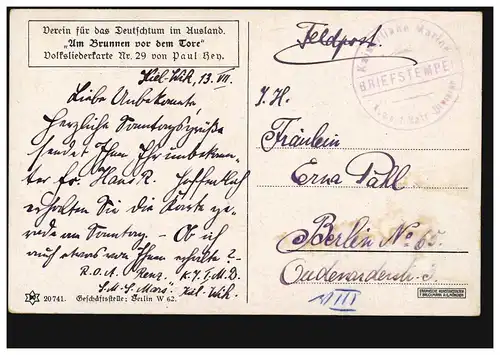 Verein für das Deutschtum im Ausland.
„Am Brunnen vor dem Tore“
Volksliederkarte Nr. 29 von Paul Hey.
Kiel-Wik, 13. VII.
Liebe Unbekannte,
Herzliche Sonntagsgrüße
sendet Ihnen Ihr unbekann-
ter Fr. Hans R. Hoffentlich
erhalten Sie die Karte ge-
rade am Sonntag. – Ob ich
auch etwas von Ihnen erhalte?
R.O.A. Renz.
S.M.S. „Mars“ Kiel-Wik.
20741. Geschäftsstelle: Berlin W 62.
Feldpost.
Kaiserliche Marine
BRIEFSTEMPEL
S. H.
Fräulein
Erna Pahl
Berlin No 65.
Oudenarderstr.
III